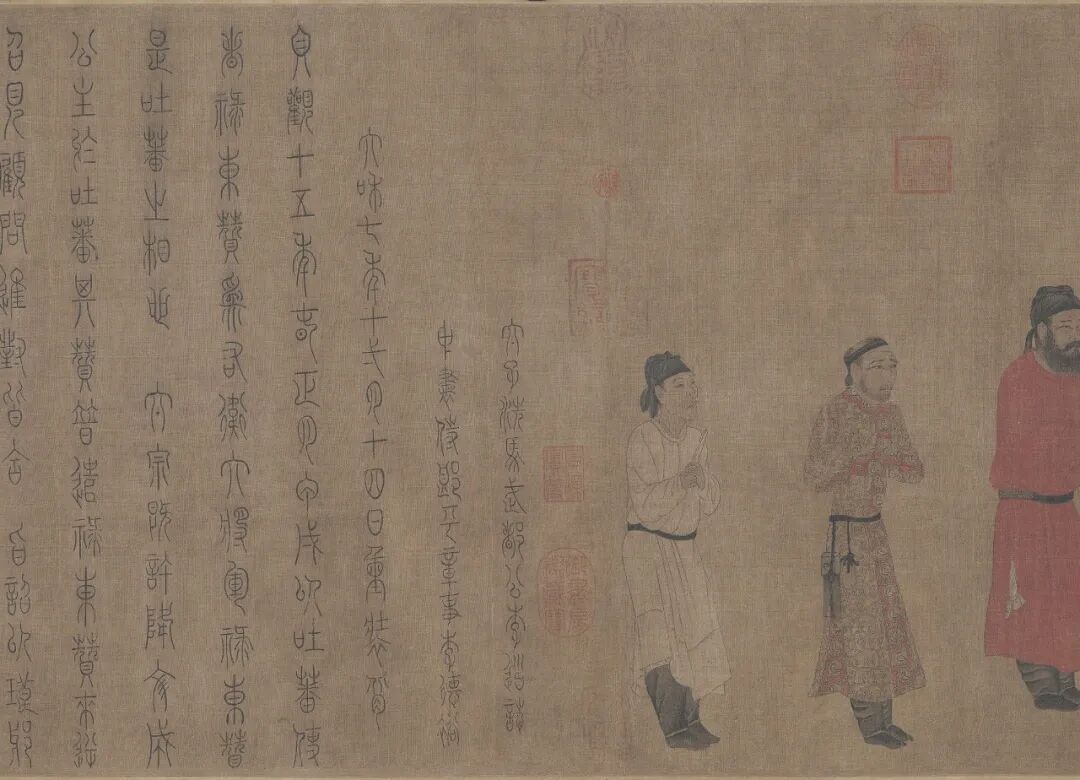 太子洗馬武都公李道誌
中書侍郎平章事李德裕
大和七年十一月十四日重裝背
貞觀十五年春正月甲戌以吐蕃使
者祿東贊為右衛大將軍祿東贊
是吐蕃之相也 太宗既許降文成
公主於吐蕃其贊普遣祿東贊來逆
召見顧問進對皆合 旨詔以琅邪